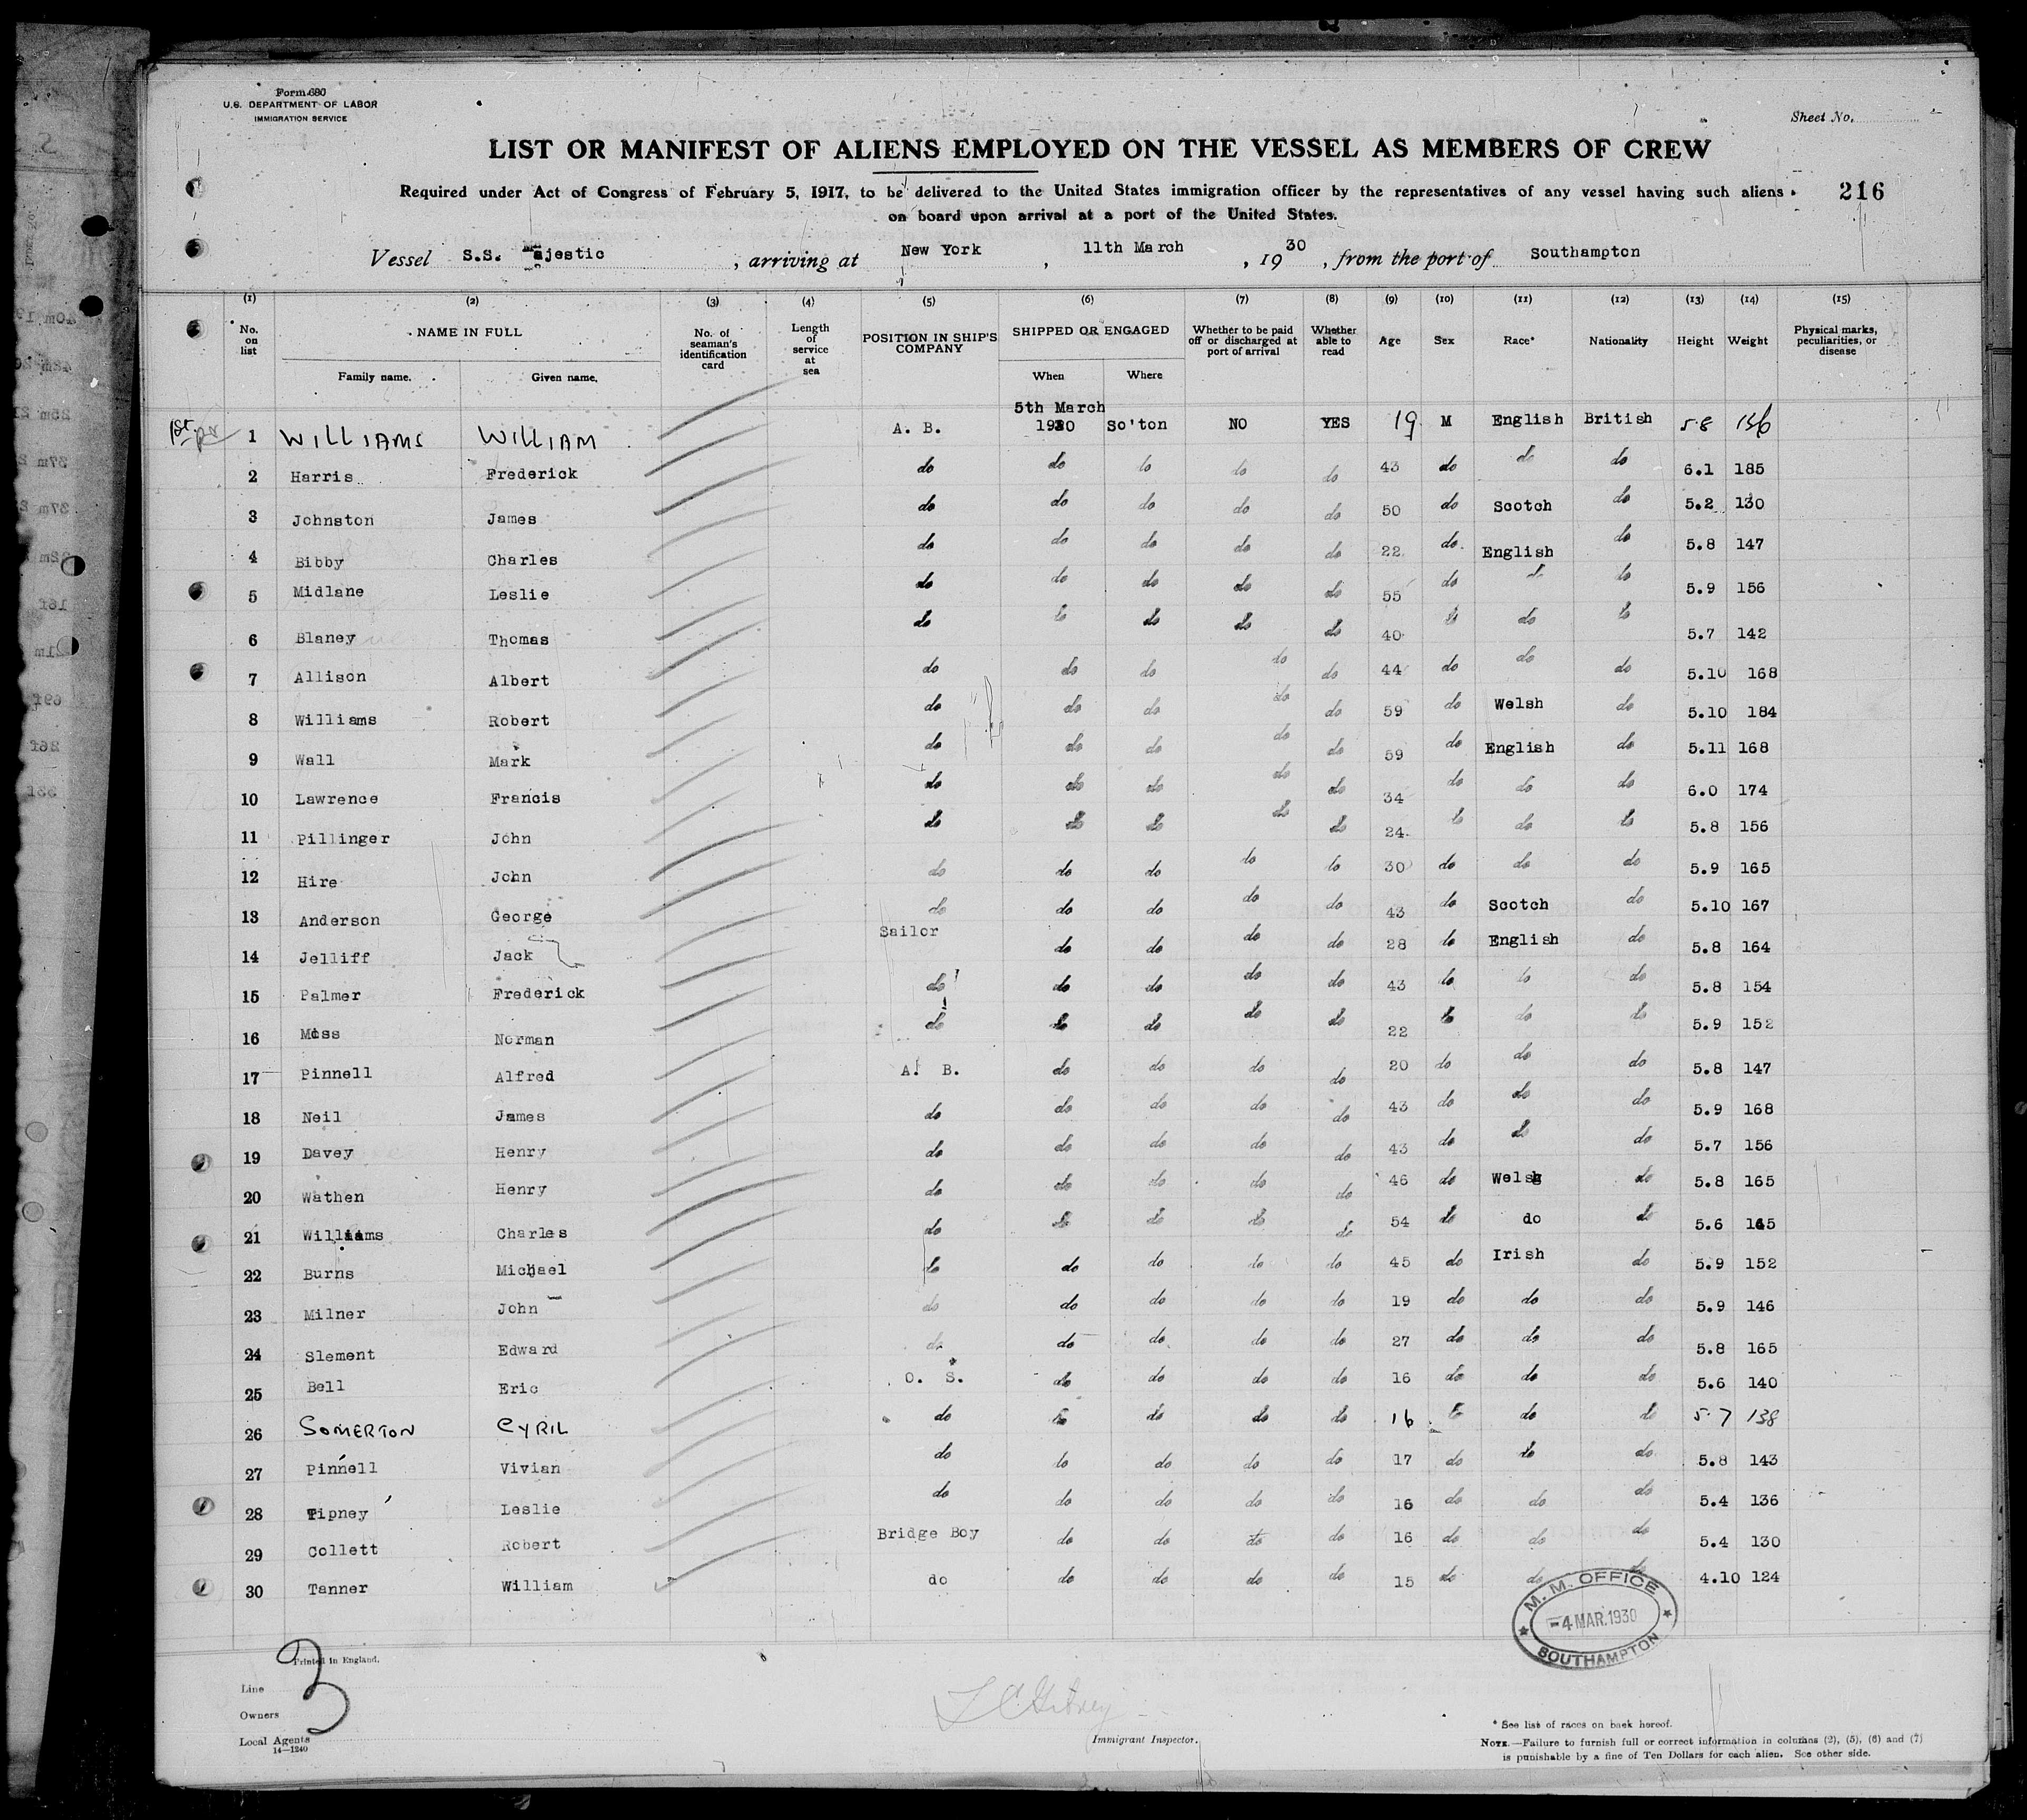 Form 680
U.S. DEPARTMENT OF LABOR
IMMIGRATION SERVICE
Sheet No.
LIST OR MANIFEST OF ALIENS EMPLOYED ON THE VESSEL AS MEMBERS OF CREW
Required under Act of Congress of February 5, 1917, to be delivered to the United States immigration officer by the representatives of any vessel having such aliens
on board upon arrival at a port of the United States.
216
Vessel S.S. Majestic, arriving at New York, 11th March, 1930, from the port of Southampton
(1) (2) (3) (4) (5) (6) (7) (8) (9) (10) (11) (12) (13) (14) (15)
No. on list NAME IN FULL No. of seaman's identification card Length of service at sea POSITION IN SHIP'S COMPANY SHIPPED OR ENGAGED Whether to be paid off or discharged at port of arrival Whether able to read Age Sex Race* Nationality Height Weight Physical marks, peculiarities, or disease
Family name. Given name. When Where
1st 1 WILLIAMS WILLIAM A. B. 5th March 1930 So'ton NO YES 19 M English British 5.8 136
2 Harris Frederick do do do do do 43 do do do 6.1 185
3 Johnston James do do do do do 50 do Scotch do 5.2 130
4 Bibby Charles do do do do do 22 do English do 5.8 147
5 Midlane Leslie do do do do do 55 do do do 5.9 156
6 Blaney Thomas do do do do do 40 do do do 5.7 142
7 Allison Albert do do do do do 44 do do do 5.10 168
8 Williams Robert do do do do do 59 do Welsh do 5.10 184
9 Wall Mark do do do do do 59 do English do 5.11 168
10 Lawrence Francis do do do do do 34 do do do 6.0 174
11 Pillinger John do do do do do 24 do do do 5.8 156
12 Hire John do do do do do 30 do do do 5.9 165
13 Anderson George do do do do do 43 do Scotch do 5.10 167
14 Jelliff Jack Sailor do do do do 28 do English do 5.8 164
15 Palmer Frederick do do do do do 43 do do do 5.8 154
16 Moss Norman do do do do do 22 do do do 5.9 152
17 Pinnell Alfred A. B. do do do do 20 do do do 5.8 147
18 Neil James do do do do do 43 do do do 5.9 168
19 Davey Henry do do do do do 43 do do do 5.7 156
20 Wathen Henry do do do do do 46 do Welsh do 5.8 165
21 Williams Charles do do do do do 54 do do do 5.6 165
22 Burns Michael do do do do do 45 do Irish do 5.9 152
23 Milner John do do do do do 19 do do do 5.9 146
24 Slement Edward do do do do do 27 do do do 5.8 165
25 Bell Eric O. S. do do do do 16 do do do 5.6 140
26 SOMERTON CYRIL do do do do do 16 do do do 5.7 138
27 Pinnell Vivian do do do do do 17 do do do 5.8 143
28 Tipney Leslie do do do do do 16 do do do 5.4 136
29 Collett Robert Bridge Boy do do do do 16 do do do 5.4 130
30 Tanner William do do do do do 15 do do do 4.10 124
M. M. OFFICE
-4 MAR.1930
SOUTHAMPTON
Printed in England.
3
Line
Owners
Local Agents
14—1240
Immigrant Inspector.
* See list of races on back hereof.
NOTE.—Failure to furnish full or correct information in columns (2), (5), (6) and (7)
is punishable by a fine of Ten Dollars for each alien. See other side.